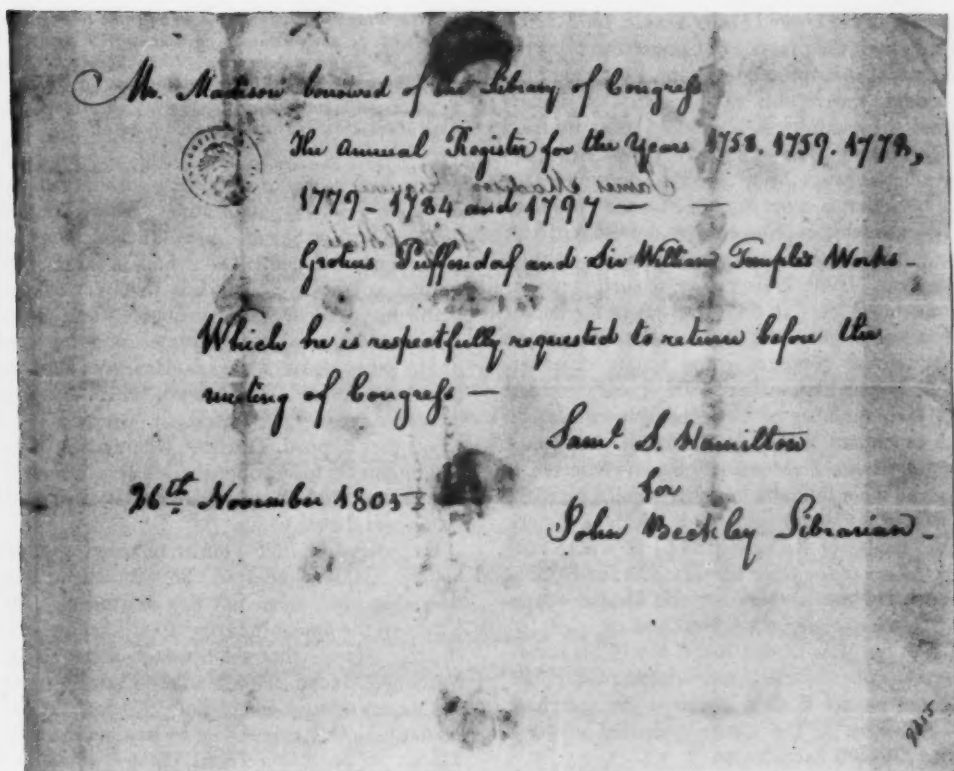 Mr. Madison borrowed of the Library of Congress
The Annual Register for the Years 1758. 1759. 1778,
1779 - 1784 and 1797 —  —
Grotius Puffendorf and Sir William Temple's Works -
Which he is respectfully requested to return before the
meeting of Congress —
Saml. S. Hamilton
for
John Beckley Librarian -
26th November 1805
James Madison Esquire